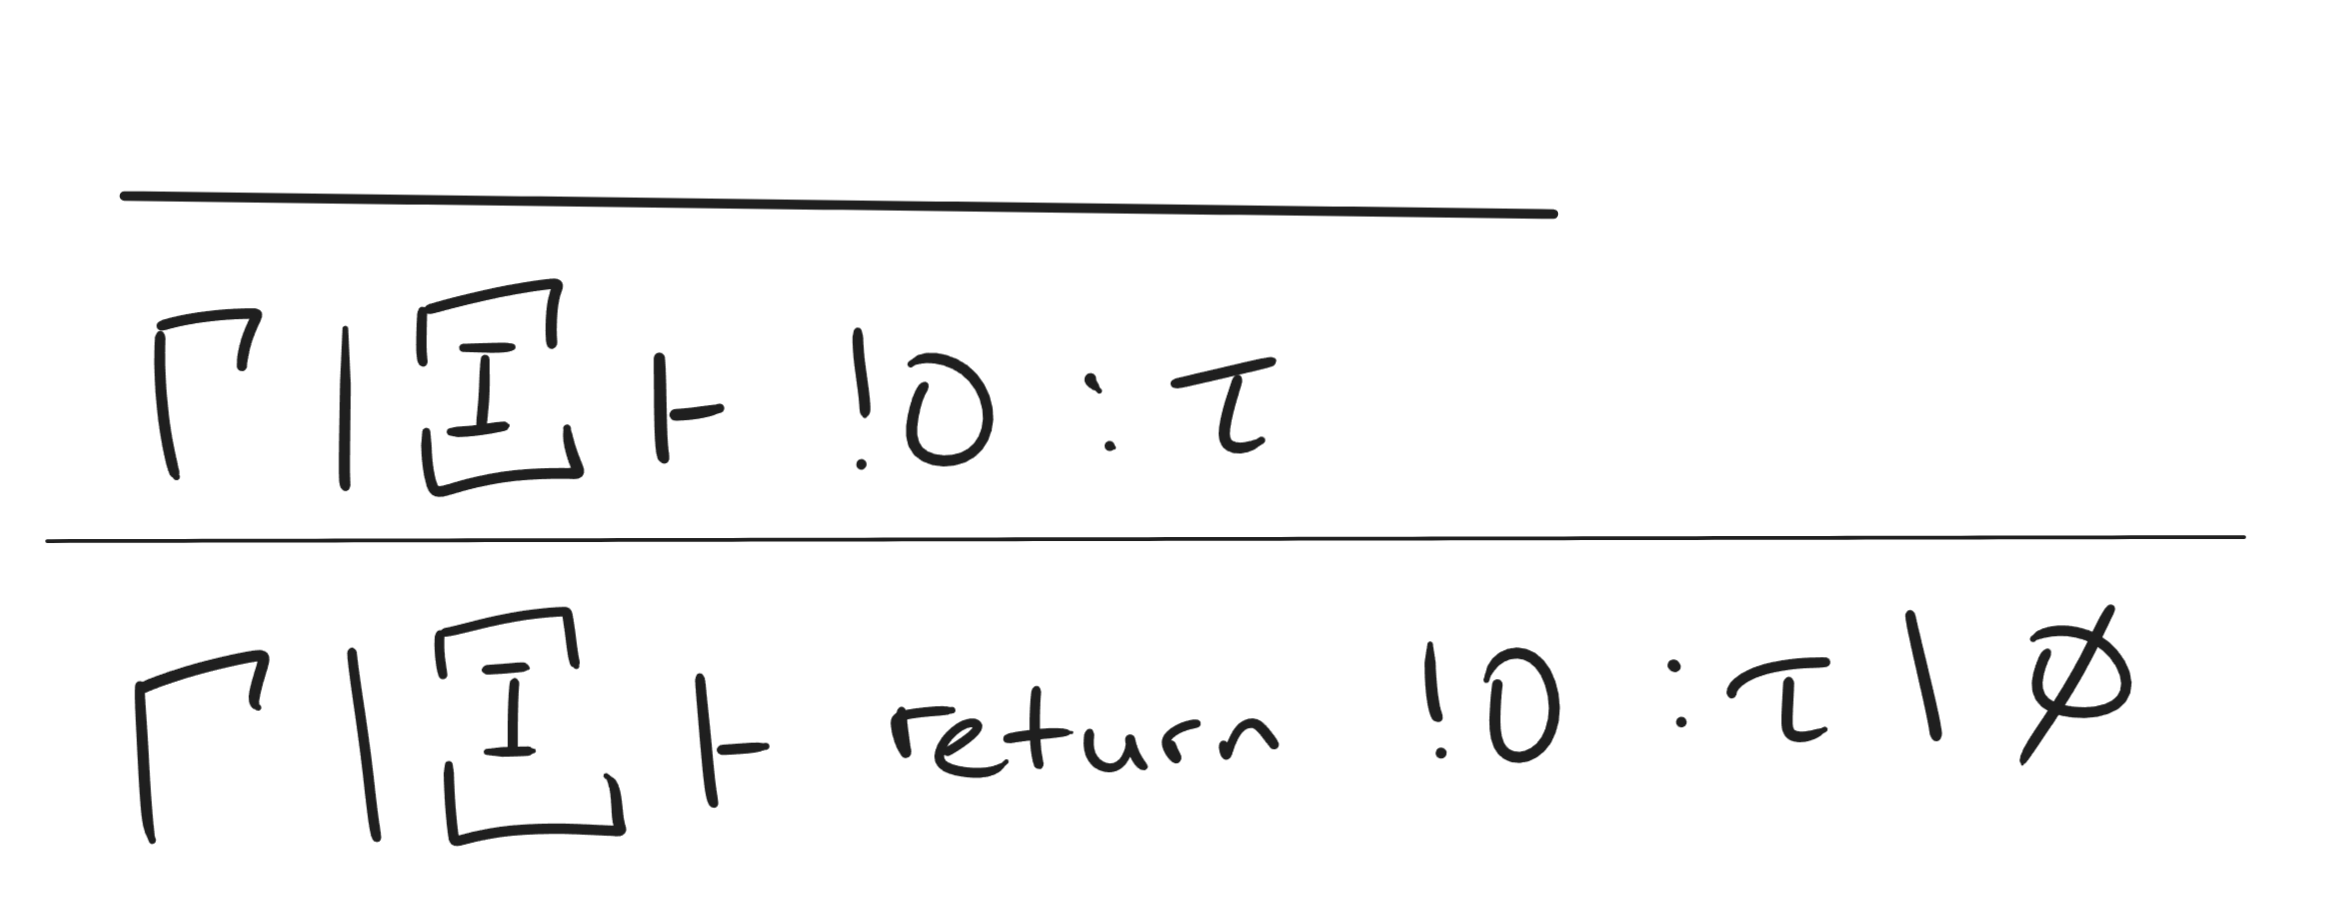 Γ | Ξ ⊢ !0 : τ
Γ | Ξ ⊢ return !0 : τ \ ∅